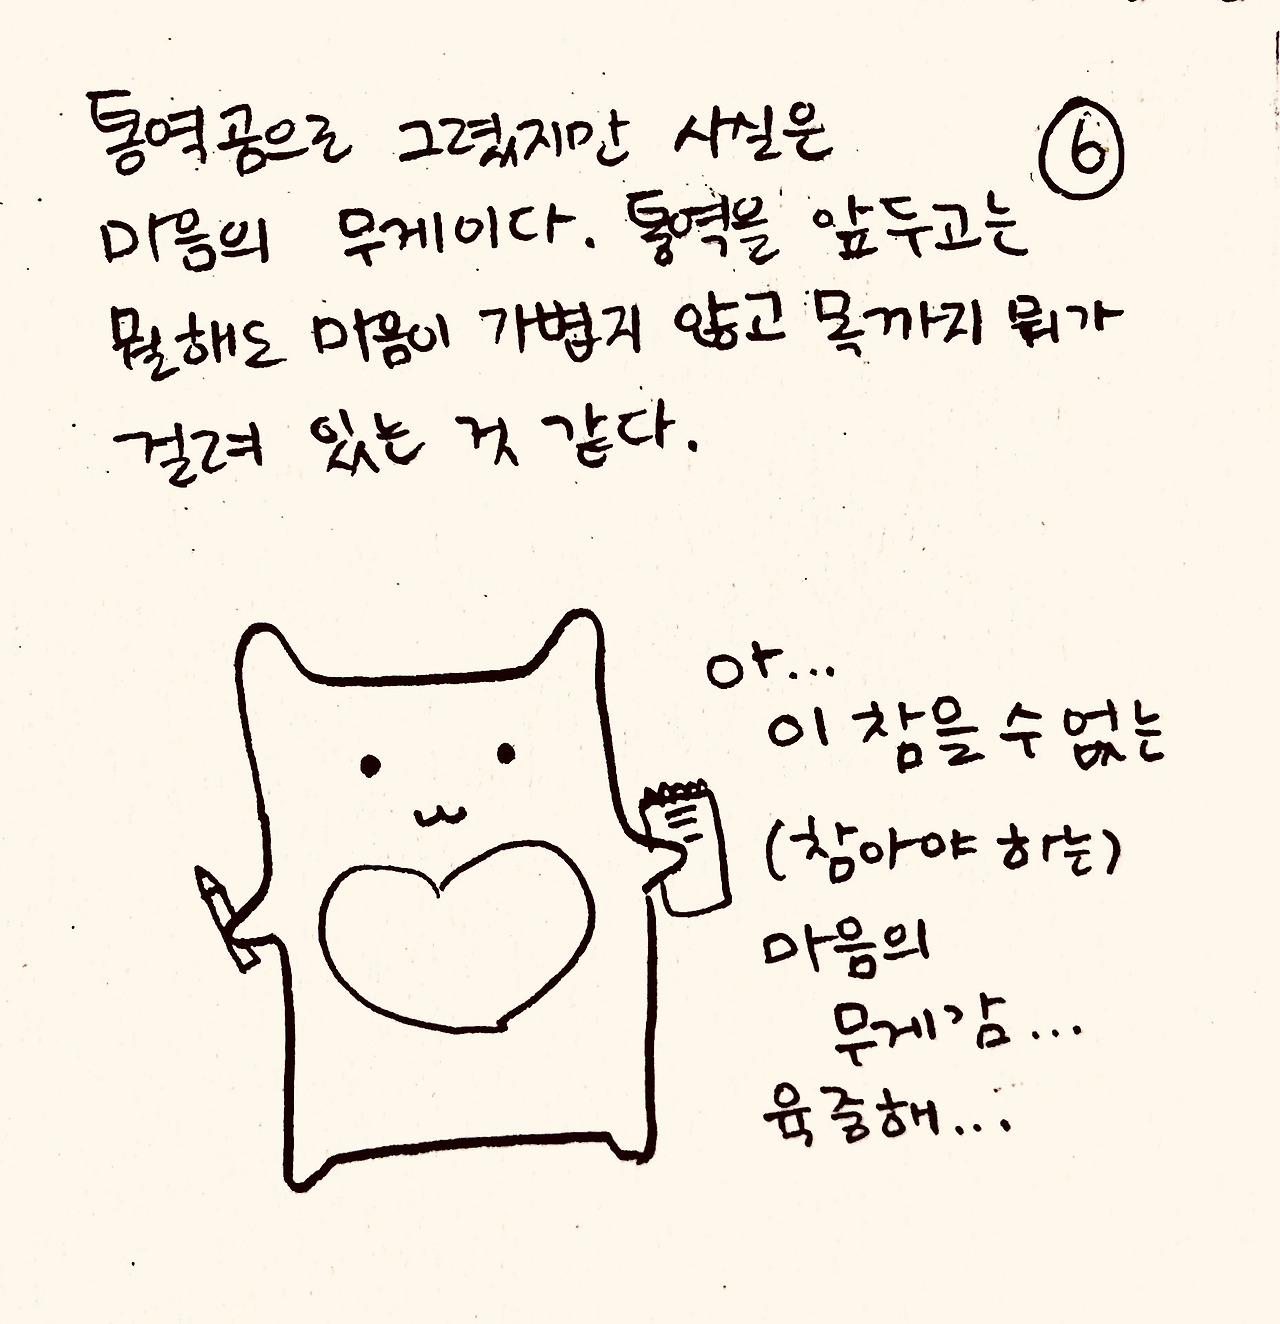 통역공으로 그렸지만 사실은
⑥
마음의 무게이다. 통역을 앞두고는
뭘해도 마음이 가볍지 않고 목까지 뭐가
걸려 있는 것 같다.
아...
이 참을 수 없는
(참아야 하는)
마음의
무게감...
육중해...